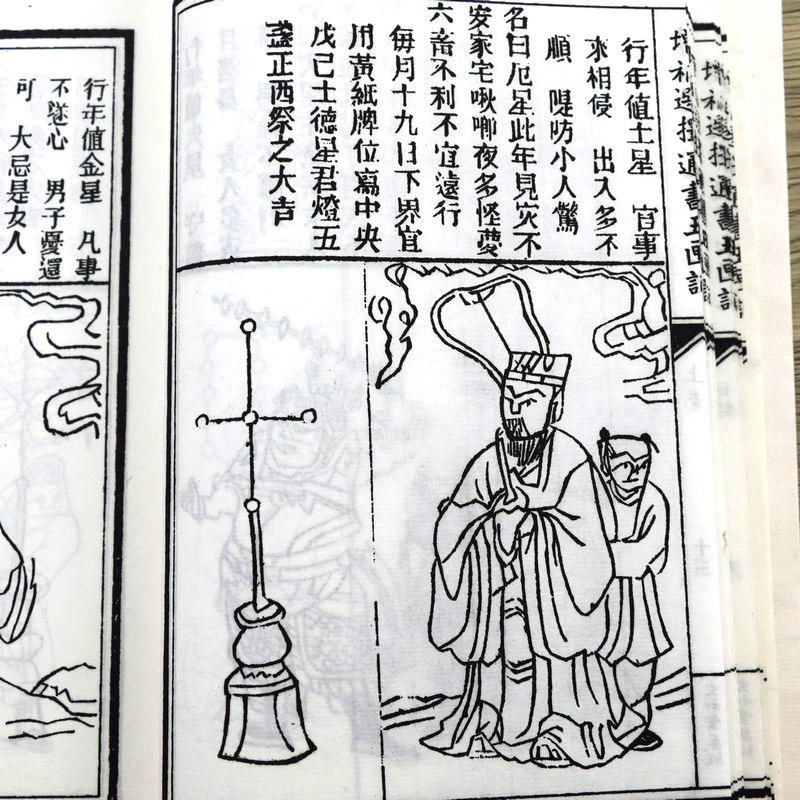 行年值土星 官事
來相侵 出入多不
順 隄防小人驚
名曰厄星此年見災不
安家宅啾唧夜多怪夢
六畜不利不宜遠行
每月十九日下界宜
用黃紙牌位寫中央
戊己土德星君燈五
盞正西祭之大吉
行年值金星 凡事
不遂心 男子憂還
可 大忌是女人